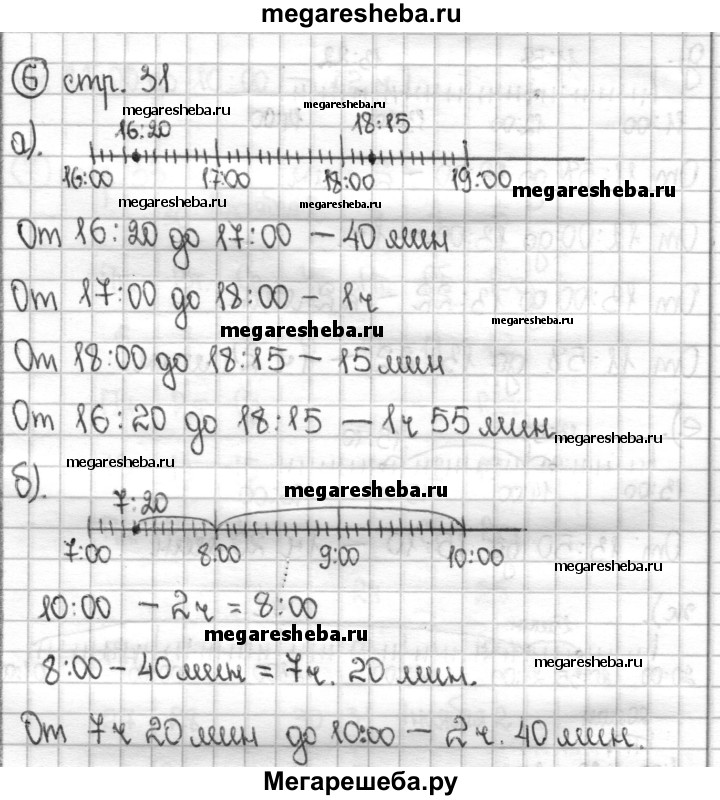 megaresheba.ru
6 стр. 31
megaresheba.ru megaresheba.ru
16:20 18:15
а).
16:00 17:00 18:00 19:00 megaresheba.ru
megaresheba.ru megaresheba.ru
От 16:20 до 17:00 – 40 мин
От 17:00 до 18:00 – 1ч
megaresheba.ru megaresheba.ru
От 18:00 до 18:15 – 15 мин
От 16:20 до 18:15 – 1ч 55 мин
megaresheba.ru
megaresheba.ru
б). megaresheba.ru
7:20
7:00 8:00 9:00 10:00
megaresheba.ru
10:00 – 2ч = 8:00
megaresheba.ru
8:00 – 40 мин = 7ч. 20 мин.
megaresheba.ru
От 7ч 20 мин до 10:00 – 2ч. 40 мин.
Мегарешеба.ру